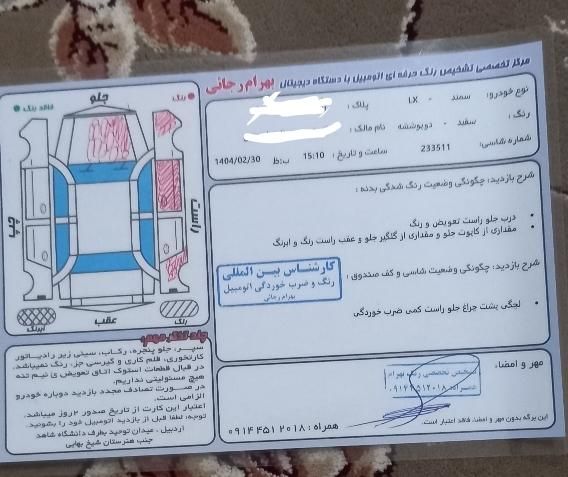 مرکز تخصصی تشخیص رنگ حرفه ای اتومبیل با دستگاه دیجیتال بهرام رجائی
نوع خودرو: سمند - LX پلاک:
رنگ: سفید - دوپوششه نام مالک:
شماره شاسی: 233511 ساعت و تاریخ: 15:10 ب:ظ 1404/02/30
شرح بازدید: چگونگی وضعیت رنگ شدگی بدنه:
درب جلو راست تعویض و رنگ
مقداری از کاپوت جلو و مقداری از گلگیر جلو و عقب راست رنگ و لیرنگ
شرح بازدید: چگونگی وضعیت شاسی و کف صندوق:
لچگی پشت چراغ جلو راست کمی ضرب خوردگی
کارشناس بین المللی
رنگ و ضرب خوردگی اتومبیل
بهرام رجائی
مهر و امضاء:
تشخیص تخصصی رنگ بهرام
این برگه بدون مهر و امضا، فاقد اعتبار است.
همراه: ۰۹۱۴۴۵۱۲۰۱۸
رنگ
جلو
فاقد رنگ
راست
چپ
عقب
رنگ
لیرنگ
چند تذکر مهم:
سپر، جلو پنجره، رکاب، سینی زیر رادیاتور
کارتخوری، قلم کاری و گیرسی جزء رنگ نمیباشد.
در قبال قطعات استوک اتاق تعویض ی نیم تنه
هیچ مسئولیتی نداریم.
در صورت تصادف مجدد بازدید دوباره خودرو
الزامی است.
اعتبار این کارت از تاریخ صدور ۲ روز میباشد.
توجه: لطفا قبل از بازدید اتومبیل خود را بشوئید.
اردبیل، میدان توحید بطرف دانشگاه شاهد
جنب هنرستان شیخ بهایی